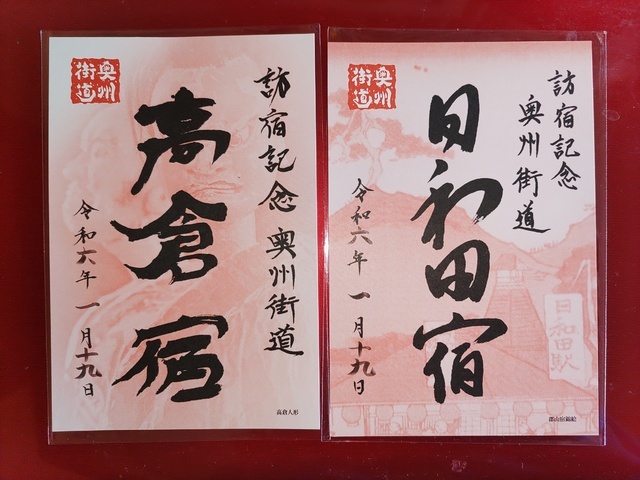 奥州
街道
訪宿記念 奥州街道
高倉宿
令和六年 一月十九日
高倉人形
奥州
街道
訪宿記念
奥州街道
日和田宿
令和六年 一月十九日
日和田駅
郡山宿錦絵